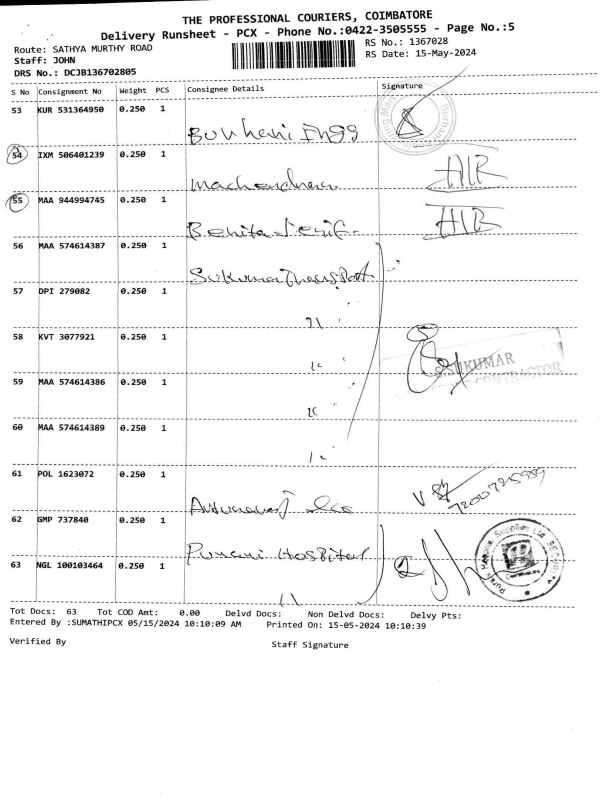 THE PROFESSIONAL COURIERS, COIMBATORE
Delivery Runsheet - PCX - Phone No.:0422-3505555 - Page No.:5
Route: SATHYA MURTHY ROAD
RS No.: 1367028
Staff: JOHN
RS Date: 15-May-2024
DRS No.: DCJB136702805
S No Consignment No Weight PCS Consignee Details Signature
53 KUR 531364950 0.250 1
54 IXM 506401239 0.250 1 HR
55 MAA 944994745 0.250 1 HR
56 MAA 574614387 0.250 1 Sukumar
57 DPI 279082 0.250 1
58 KVT 3077921 0.250 1 S.SUKUMAR
CONTRACTOR
59 MAA 574614386 0.250 1
60 MAA 574614389 0.250 1
61 POL 1623072 0.250 1
62 GMP 737840 0.250 1 Purani Hospital
63 NGL 100103464 0.250 1 11
Tot Docs: 63 Tot COD Amt: 0.00 Delvd Docs: Non Delvd Docs: Delvy Pts:
Entered By :SUMATHIPCX 05/15/2024 10:10:09 AM Printed On: 15-05-2024 10:10:39
Verified By Staff Signature